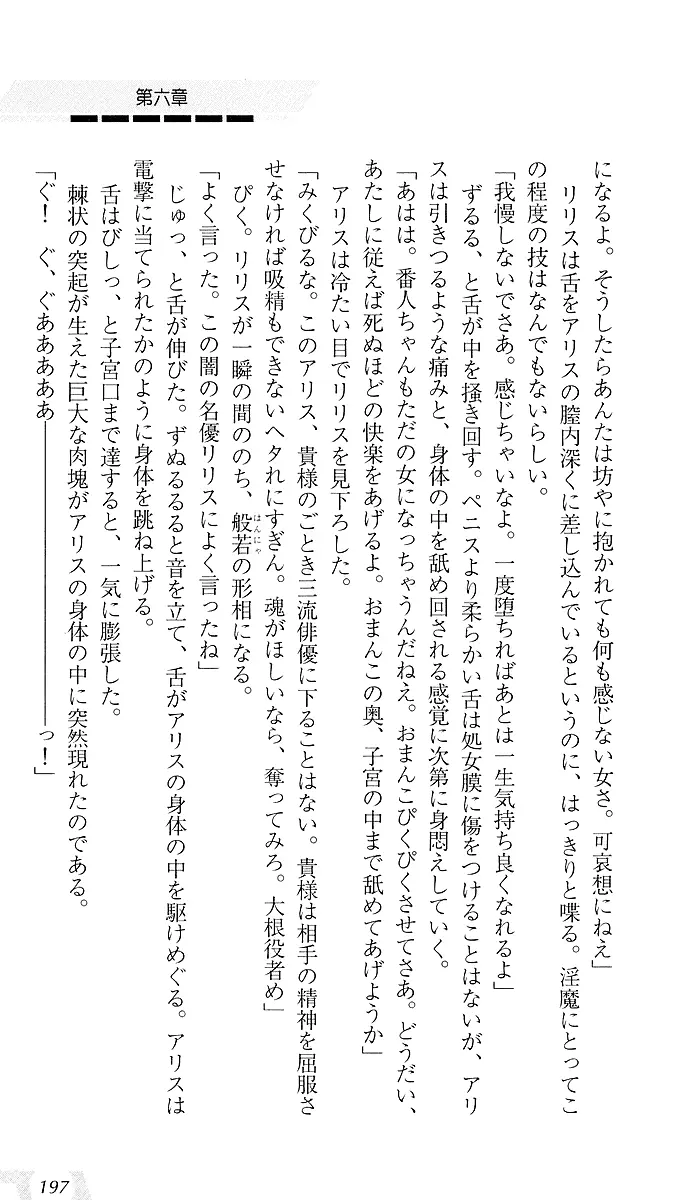 第六章
になるよ。そうしたらあんたは坊やに抱かれても何も感じない女さ。可哀想にねえ」
リリスは舌をアリスの膣内深くに差し込んでいるというのに、はっきりと喋る。淫魔にとってこ
の程度の技はなんでもないらしい。
「我慢しないでさあ。感じちゃいなよ。一度堕ちればあとは一生気持ち良くなれるよ」
ずるる、と舌が中を掻き回す。ペニスより柔らかい舌は処女膜に傷をつけることはないが、アリ
スは引きつるような痛みと、身体の中を舐め回される感覚に次第に身悶えしていく。
「あはは。番人ちゃんもただの女になっちゃうんだねえ。おまんこぴくぴくさせてさあ。どうだい、
あたしに従えば死ぬほどの快楽をあげるよ。おまんこの奥、子宮の中まで舐めてあげようか」
アリスは冷たい目でリリスを見下ろした。
「みくびるな。このアリス、貴様のごとき三流俳優に下ることはない。貴様は相手の精神を屈服さ
せなければ吸精もできないヘタれにすぎん。魂がほしいなら、奪ってみろ。大根役者め」
ぴく。リリスが一瞬の間ののち、般若の形相になる。
はんにゃ
「よく言った。この闇の名優リリスによく言ったね」
じゅっ、と舌が伸びた。ずぬるるると音を立て、舌がアリスの身体の中を駆けめぐる。アリスは
電撃に当てられたかのように身体を跳ね上げる。
舌はびしっ、と子宮口まで達すると、一気に膨張した。
棘状の突起が生えた巨大な肉塊がアリスの身体の中に突然現れたのである。
「ぐ！　ぐ、ぐああああぁ――――――――――っ！」
197